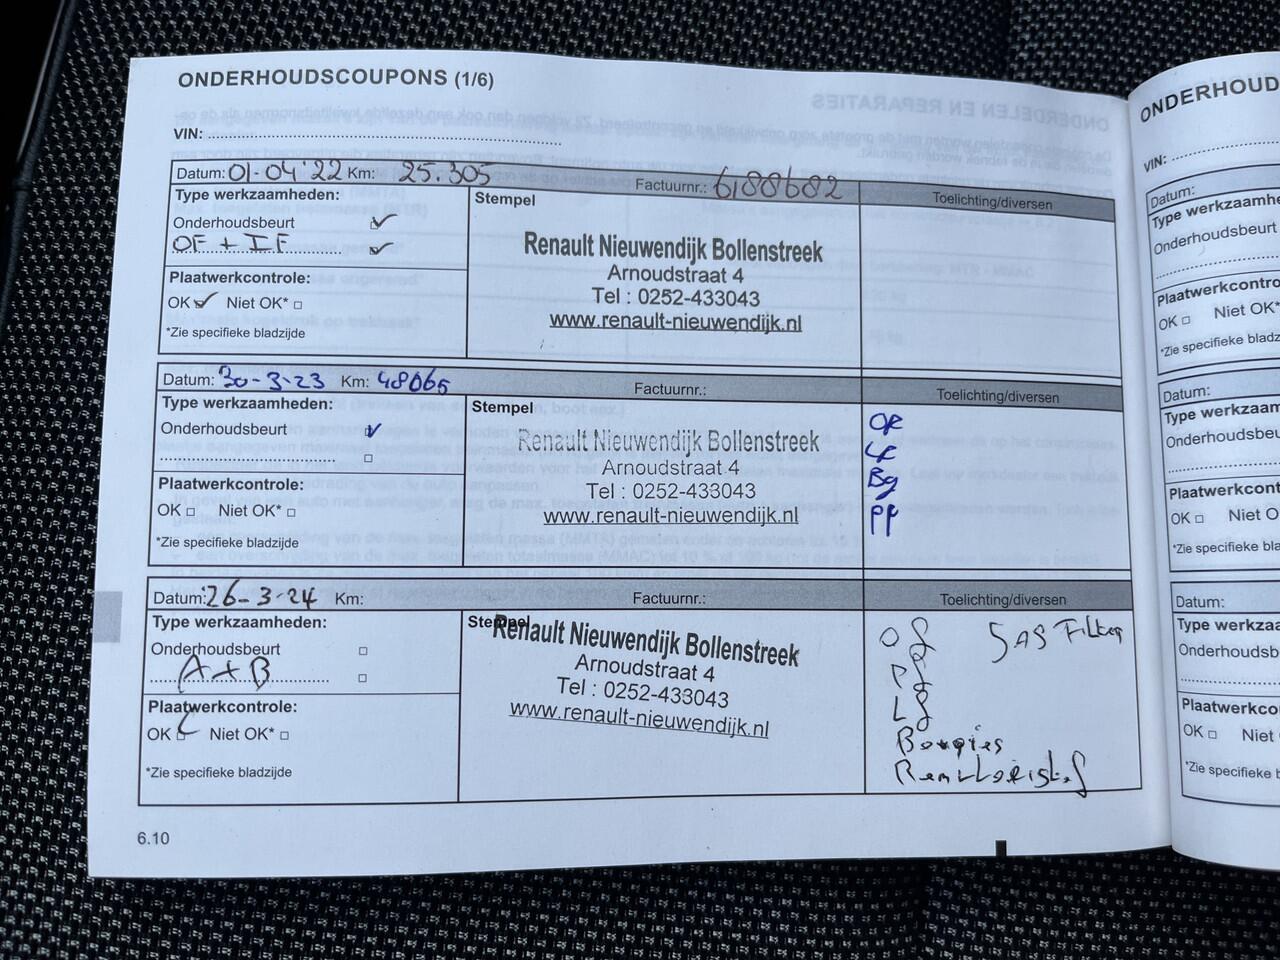 ONDERHOUDSCOUPONS (1/6)
VIN:
Datum: 01-04'22 Km: 25.305 Factuurnr.: 6188682 Toelichting/diversen
Type werkzaamheden: Stempel
Onderhoudsbeurt
OF + IF
Plaatwerkcontrole:
OK Niet OK*
*Zie specifieke bladzijde
Renault Nieuwendijk Bollenstreek
Arnoudstraat 4
Tel : 0252-433043
www.renault-nieuwendijk.nl
Datum: 30-3-23 Km: 48065 Factuurnr.: Toelichting/diversen
Type werkzaamheden: Stempel
Onderhoudsbeurt
Plaatwerkcontrole:
OK Niet OK*
*Zie specifieke bladzijde
Renault Nieuwendijk Bollenstreek
Arnoudstraat 4
Tel : 0252-433043
www.renault-nieuwendijk.nl
OF
LF
Bg
PF
Datum: 26-3-24 Km: Factuurnr.: Toelichting/diversen
Type werkzaamheden: Stempel
Onderhoudsbeurt
A+B
Plaatwerkcontrole:
OK Niet OK*
*Zie specifieke bladzijde
Renault Nieuwendijk Bollenstreek
Arnoudstraat 4
Tel : 0252-433043
www.renault-nieuwendijk.nl
Of
Pf
Lf
Bougies
6.10
ONDERHOUD
VIN:
Datum:
Type werkzaamhe
Onderhoudsbeurt
Plaatwerkcontro
OK Niet OK*
*Zie specifieke bladz
Datum:
Type werkzaam
Onderhoudsbeu
Plaatwerkcont
OK Niet O
*Zie specifieke b
Datum:
Type werkza
Onderhoudsb
Plaatwerkco
OK Niet
*Zie specifieke